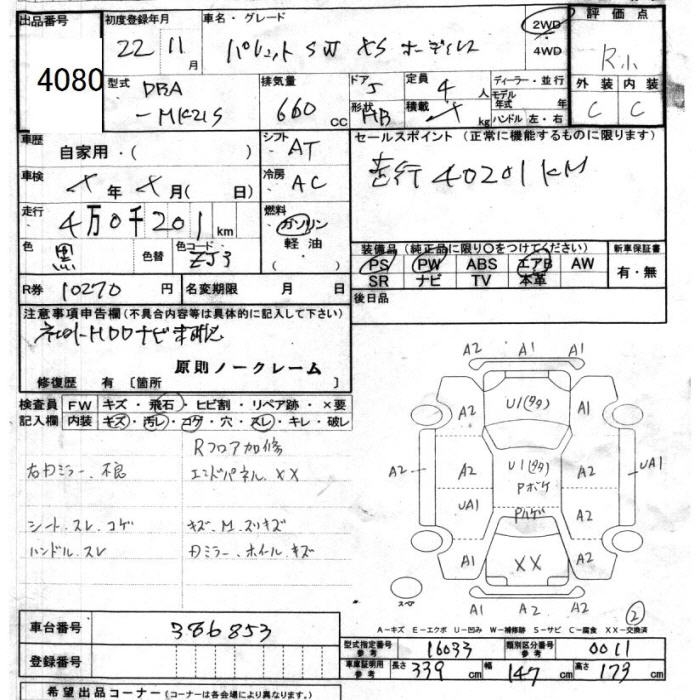 出品番号 初度登録年月 車名・グレード 評価点
4080
22年 11月 パレット SW XS ホーディルス 2WD 4WD R小
型式 DBA-MK21S 排気量 660 cc ドア 5 形状 HB 定員 4人 積載 × kg ディーラー・並行 モデル年式 年 ハンドル 左・右 外装 C 内装 C
車歴 自家用・( ) シフト AT
セールスポイント (正常に機能するものに限ります)
車検 ×年 ×月( 日) 冷房 AC
走行 40201KM
走行 4万0千201km 燃料 ガソリン 軽油 ( )
色 黒 色替 色コード ZJ3
装備品 (純正品に限り○をつけてください) 新車保証書
PS PW ABS エアB AW 有・無
SR ナビ TV 本革
R券 10270円 名変期限 月 日
後日品
注意事項申告欄 (不具合内容等は具体的に記入して下さい)
HDDナビ
原則ノークレーム
修復歴 有 [箇所 ]
検査員記入欄 FW キズ・飛石・ヒビ割・リペア跡・×要
内装 キズ・汚レ・コゲ・穴・スレ・キレ・破レ
Rフロア加修
右ドミラー、不良 エンドパネル、XX
シート、スレ、コゲ キズ、M、スリキズ
ハンドル、スレ Dミラー、ホイル、キズ
A2 A1 A1
A2 U1(タタ) A1
A2 U1(タタ) Pボケ A2 UA1
UA1 Pハゲ A2
A1 XX A2
A1 A2 A2
スペア
②
A-キズ E-エクボ U-凹み W-補修跡 S-サビ C-腐食 XX-交換済
車台番号 386853
型式指定番号 参考 16033 類別区分番号 参考 0011
登録番号
車庫証明用 参考 長さ 339cm 幅 147cm 高さ 173cm
希望出品コーナー (コーナーは各会場により異なります。)